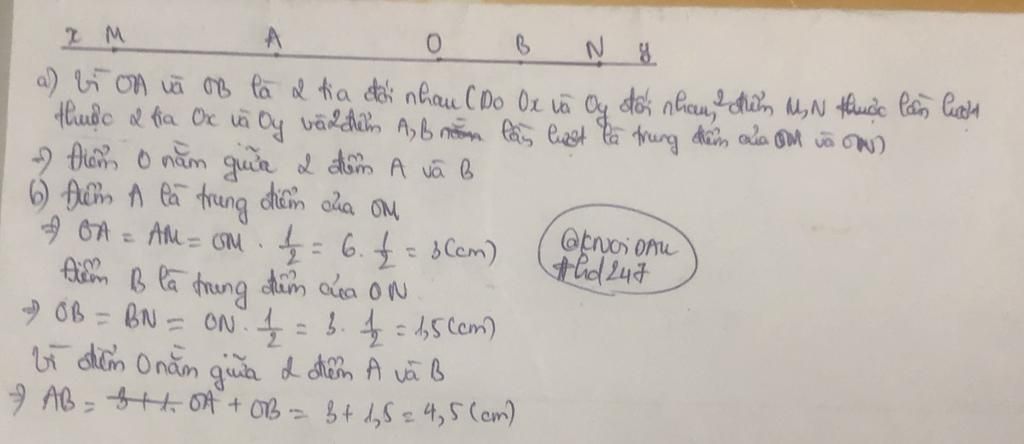 x M A O B N y
a) Vì OA và OB là 2 tia đối nhau (Do Ox và Oy đối nhau, 2 điểm M, N thuộc lần lượt
thuộc 2 tia Ox và Oy và 2 điểm A, B nằm lần lượt là trung điểm của OM và ON)
=> Điểm O nằm giữa 2 điểm A và B
b) Điểm A là trung điểm của OM
=> OA = AM = OM . 1/2 = 6 . 1/2 = 3 (cm)
Điểm B là trung điểm của ON
=> OB = BN = ON . 1/2 = 3 . 1/2 = 1,5 (cm)
Vì điểm O nằm giữa 2 điểm A và B
=> AB = 3 + 1. OA + OB = 3 + 1,5 = 4,5 (cm)
#hd247